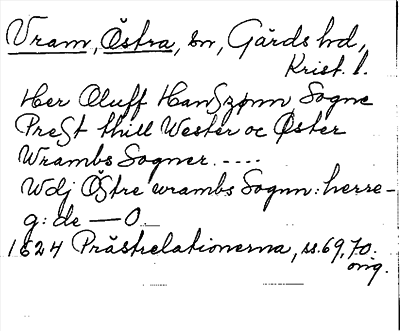 Vram, Östra, sn, Gärds hd,
Krist. l.
Her Oluff HanSzønn Sogne
PreSt thill Wester oc Øster
Wrambs Sogner. ----
Wdj ÖStre wrambs Sognn: herre-
g: de — 0.
1624 Prästrelationerna, ss. 69, 70.
orig.